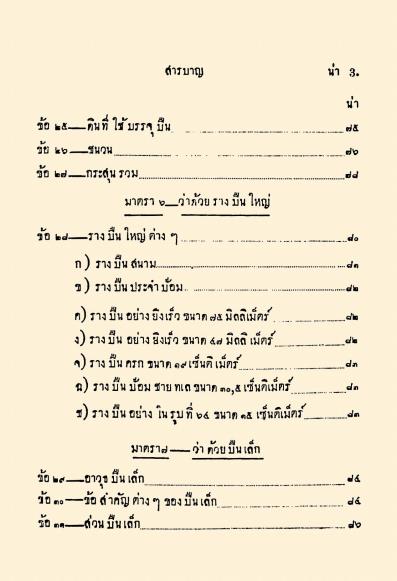 สารบาญ น่า 3.
น่า
ข้อ ๒๕—ดินที่ ใช้ บรรจุ ปืน ๗๕
ข้อ ๒๖—ชนวน ๗๖
ข้อ ๒๗—กระสุน รวม ๗๘
มาตรา ๖—ว่าด้วย ราง ปืน ใหญ่
ข้อ ๒๘—ราง ปืน ใหญ่ ต่าง ๆ ๘๐
ก) ราง ปืน สนาม ๘๑
ข) ราง ปืน ประจำ ป้อม ๘๒
ค) ราง ปืน อย่าง ยิงเร็ว ขนาด ๗๕ มิลลิเม็ตร์ ๘๒
ง) ราง ปืน อย่าง ยิงเร็ว ขนาด ๔๗ มิลลิ เม็ตร์ ๘๒
จ) ราง ปืน ครก ขนาด ๑๙ เซ็นติ เม็ตร์ ๘๓
ฉ) ราง ปืน ป้อม ชาย ทเล ขนาด ๓๐,๕ เซ็นติเม็ตร์ ๘๓
ช) ราง ปืน อย่าง ใน รูป ที่ ๖๔ ขนาด ๑๕ เซ็นติเม็ตร์ ๘๓
มาตรา ๗—ว่า ด้วย ปืน เล็ก
ข้อ ๒๙—อาวุธ ปืน เล็ก ๘๔
ข้อ ๓๐—ข้อ สำคัญ ต่าง ๆ ของ ปืน เล็ก ๘๔
ข้อ ๓๑—ส่วน ปืน เล็ก ๘๖